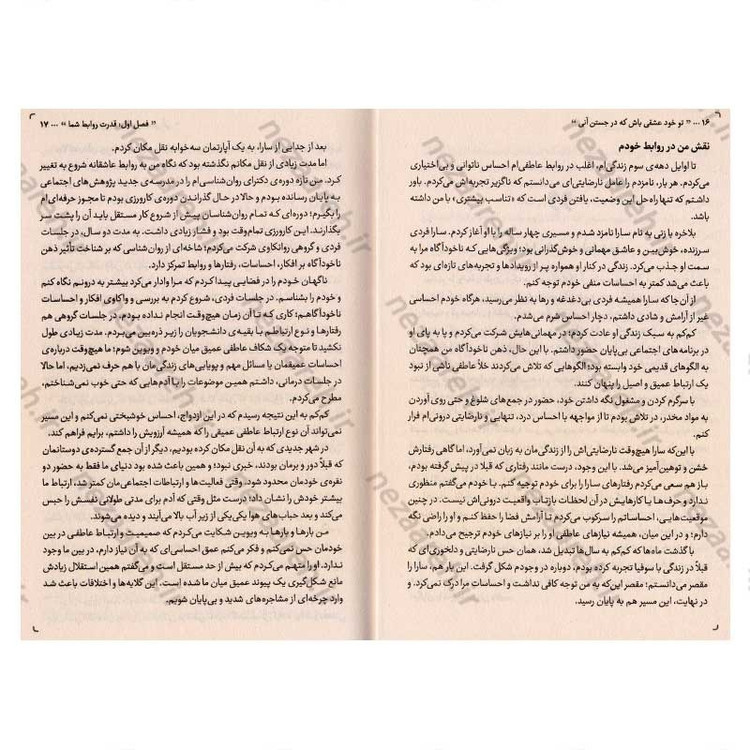 ۱۶ ... « تو خود عشقی باش که در جستن آنی »
نقش من در روابط خودم
تا اوایل دهه‌ی سوم زندگی‌ام، اغلب در روابط عاطفی‌ام احساس ناتوانی و بی‌اختیاری
می‌کردم. هر بار، نامزدم را عامل نارضایتی‌ای می‌دانستم که ناگزیر تجربه‌اش می‌کردم. باور
داشتم که تنها راه حل این وضعیت، یافتن فردی است که «تناسب بیشتری» با من داشته
باشد.
بلاخره با زنی به نام سارا نامزد شدم و مسیری چهار ساله را با او آغاز کردم. سارا فردی
سرزنده، خوش‌بین و عاشق مهمانی و خوش‌گذرانی بود؛ ویژگی‌هایی که ناخودآگاه مرا به
سمت او جذب می‌کرد. زندگی در کنار او همواره پر از رویدادها و تجربه‌های تازه‌ای بود که
باعث می‌شد کمتر به احساسات منفی خودم توجه کنم.
از آن‌جا که سارا همیشه فردی بی‌دغدغه و رها به نظر می‌رسید، هرگاه خودم احساسی
غیر از آرامش و شادی داشتم، دچار احساس شرم می‌شدم.
کم‌کم به سبک زندگی او عادت کردم؛ در مهمانی‌هایش شرکت می‌کردم و پا به پای او
در برنامه‌های اجتماعی بی‌پایان حضور داشتم. با این حال، ذهن ناخودآگاه من همچنان
به الگوهای قدیمی خود وابسته بود؛ الگوهایی که تلاش می‌کردند خلأ عاطفی ناشی از نبود
یک ارتباط عمیق و اصیل را پنهان کنند.
با سرگرم کردن و مشغول نگه داشتن خود، حضور در جمع‌های شلوغ و حتی روی آوردن
به مواد مخدر، در تلاش بودم تا از مواجهه با احساس درد، تنهایی و نارضایتی درونی‌ام فرار
کنم.
با این‌که سارا هیچ‌وقت نارضایتی‌اش را از زندگی‌مان به زبان نمی‌آورد، اما گاهی رفتارش
خشن و توهین‌آمیز می‌شد. با این وجود، درست مانند رفتاری که قبلا در پیش گرفته بودم،
باز هم سعی می‌کردم رفتارهای سارا را برای خودم توجیه کنم. با خودم می‌گفتم منظوری
ندارد و حرف‌ها یا کارهایش در آن لحظات بازتاب واقعیت درونی‌اش نیست. در چنین
موقعیت‌هایی، احساساتم را سرکوب می‌کردم تا آرامش فضا را حفظ کنم و او را راضی نگه
دارم؛ و در این میان، همیشه نیازهای عاطفی او را بر نیازهای خودم ترجیح می‌دادم.
با گذشت ماه‌ها که کم‌کم به سال‌ها تبدیل شد، همان حس نارضایتی و دلخوری‌ای که
قبلاً در زندگی با سوفیا تجربه کرده بودم، دوباره در وجودم شکل گرفت. این بار هم، سارا را
مقصر می‌دانستم؛ مقصر این‌که به من توجه کافی نداشت و احساسات مرا درک نمی‌کرد. و
در نهایت، این مسیر هم به پایان رسید.
« فصل اول: قدرت روابط شما » ... ۱۷
بعد از جدایی از سارا، به یک آپارتمان سه‌خوابه نقل مکان کردم.
اما مدت زیادی از نقل مکانم نگذشته بود که نگاه من به روابط عاشقانه شروع به تغییر
کرد. من تازه دوره‌ی دکترای روان‌شناسی‌ام را در مدرسه‌ی جدید پژوهش های اجتماعی
به پایان رسانده بودم و حالا در حال گذراندن دوره‌ی کارورزی بودم تا مجوز حرفه‌ای‌ام
را بگیرم؛ دوره‌ای که تمام روان‌شناسان پیش از شروع کار مستقل باید آن را پشت سر
بگذارند. این کارورزی تمام‌وقت بود و فشار زیادی داشت. به مدت دو سال، در جلسات
فردی و گروهی روانکاوی شرکت می‌کردم؛ شاخه‌ای از روان‌شناسی که بر شناخت تأثیر ذهن
ناخودآگاه بر افکار، احساسات، رفتارها و روابط تمرکز دارد.
ناگهان خودم را در فضایی پیدا کردم که مرا وادار می‌کرد بیشتر به درونم نگاه کنم
و خودم را بشناسم. در جلسات فردی، شروع کردم به بررسی و واکاوی افکار و احساسات
ناخودآگاهم؛ کاری که تا آن زمان هیچ‌وقت انجام نداده بودم. در جلسات گروهی هم
رفتارها و نوع ارتباطم با بقیه‌ی دانشجویان را زیر ذره‌بین می‌بردم. مدت زیادی طول
نکشید تا متوجه یک شکاف عاطفی عمیق میان خودم و ویوین شوم؛ ما هیچ‌وقت درباره‌ی
احساسات عمیقمان یا مسائل مهم و پویایی‌های زندگی‌مان با هم حرف نمی‌زدیم، اما حالا
در جلسات درمانی، داشتم همین موضوعات را با آدم‌هایی که حتی خوب نمی‌شناختم،
مطرح می‌کردم.
کم‌کم به این نتیجه رسیدم که در این ازدواج، احساس خوشبختی نمی‌کنم و این مسیر
نمی‌تواند آن نوع ارتباط عاطفی عمیقی را که همیشه آرزویش را داشتم، برایم فراهم کند.
در شهر جدیدی که به آن نقل مکان کرده بودیم، دیگر از آن جمع گسترده‌ی دوستانمان
که قبلا دور و برمان بودند، خبری نبود؛ و همین باعث شده بود دنیای ما فقط به حضور دو
نفره‌ی خودمان محدود شود. وقتی فعالیت‌ها و ارتباطات اجتماعی‌مان کمتر شد، ارتباط ما
بیشتر خودش را نشان داد؛ درست مثل وقتی که آدم برای مدتی طولانی نفسش را حبس
می‌کند و بعد حباب‌های هوا یکی‌یکی از زیر آب بالا می‌آیند و دیده می‌شوند.
من بارها و بارها به ویوین شکایت می‌کردم که صمیمیت و ارتباط عاطفی در بین
خودمان حس نمی‌کنم و فکر می‌کنم عمق احساسی‌ای که به آن نیاز دارم، در بین ما وجود
ندارد. او را متهم می‌کردم که بیش از حد مستقل است و می‌گفتم همین استقلال زیادش
مانع شکل‌گیری یک پیوند عمیق میان ما شده است. این گلایه‌ها و اختلافات باعث شد
وارد چرخه‌ای از مشاجره‌های شدید و بی‌پایان شویم.